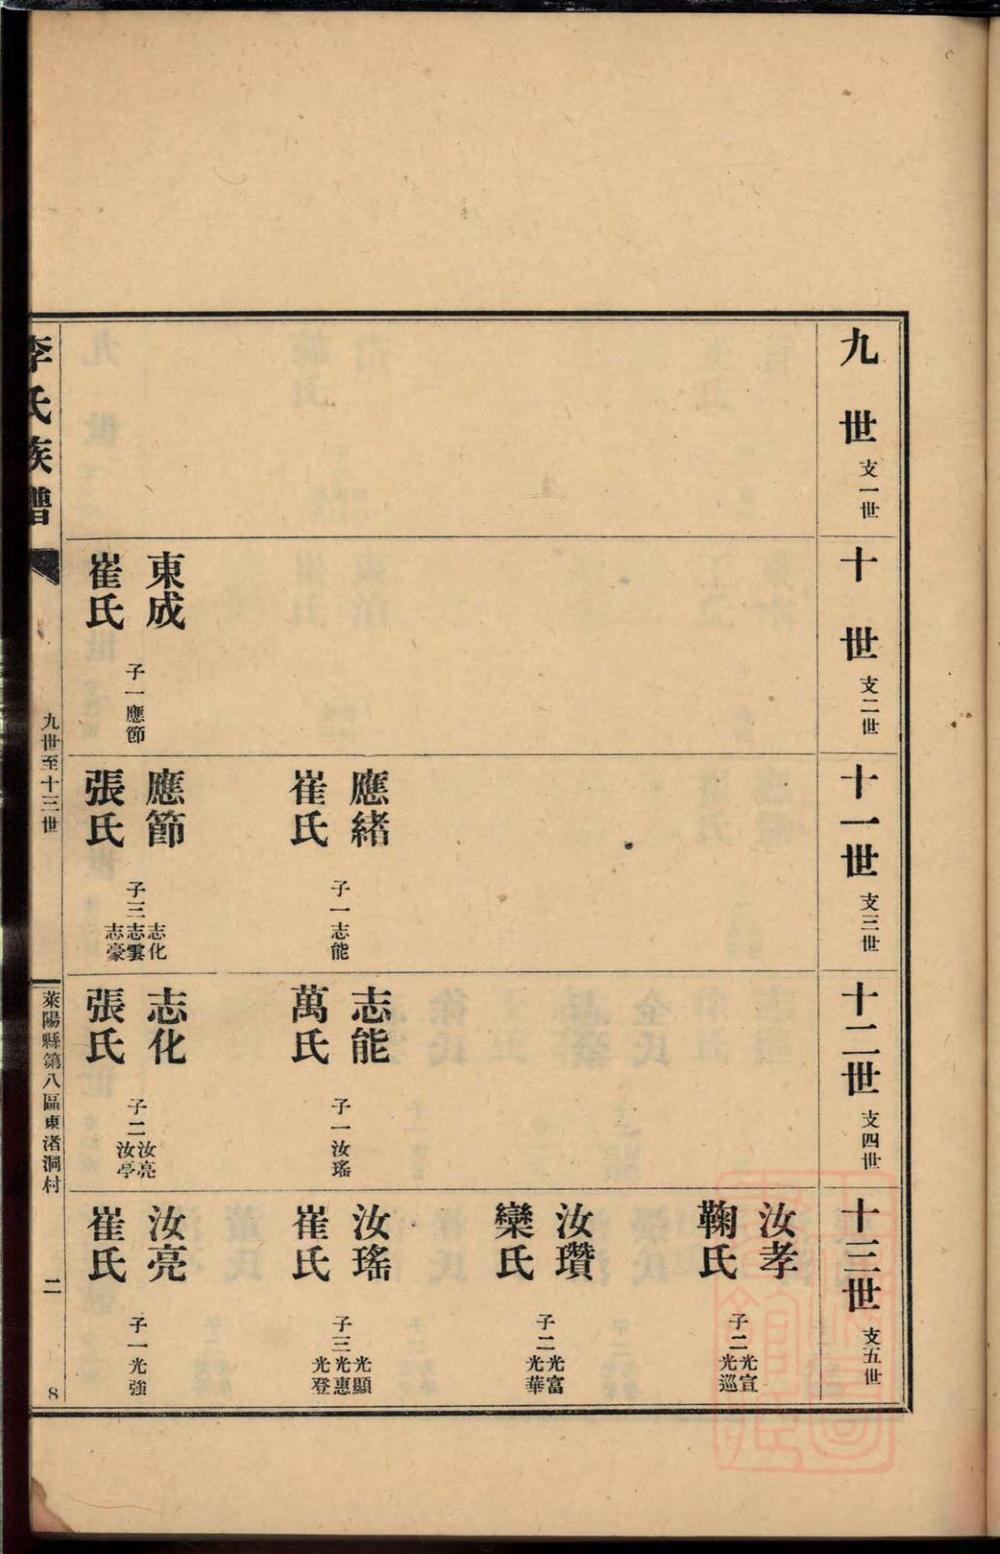 九世 支一世
十世 支二世
十一世 支三世
十二世 支四世
十三世 支五世
東成
崔氏
子一應節
應緒
崔氏
子一志能
應節
張氏
子三志化
志雲
志豪
志能
萬氏
子一汝瑤
志化
張氏
子二汝亮
汝亭
汝孝
鞠氏
子二光宣
光巡
汝瓚
欒氏
子二光富
光華
汝瑤
崔氏
子三光顯
光惠
光登
汝亮
崔氏
子一光強
李氏族譜
九世至十三世
萊陽縣第八區東渚洞村
二
8